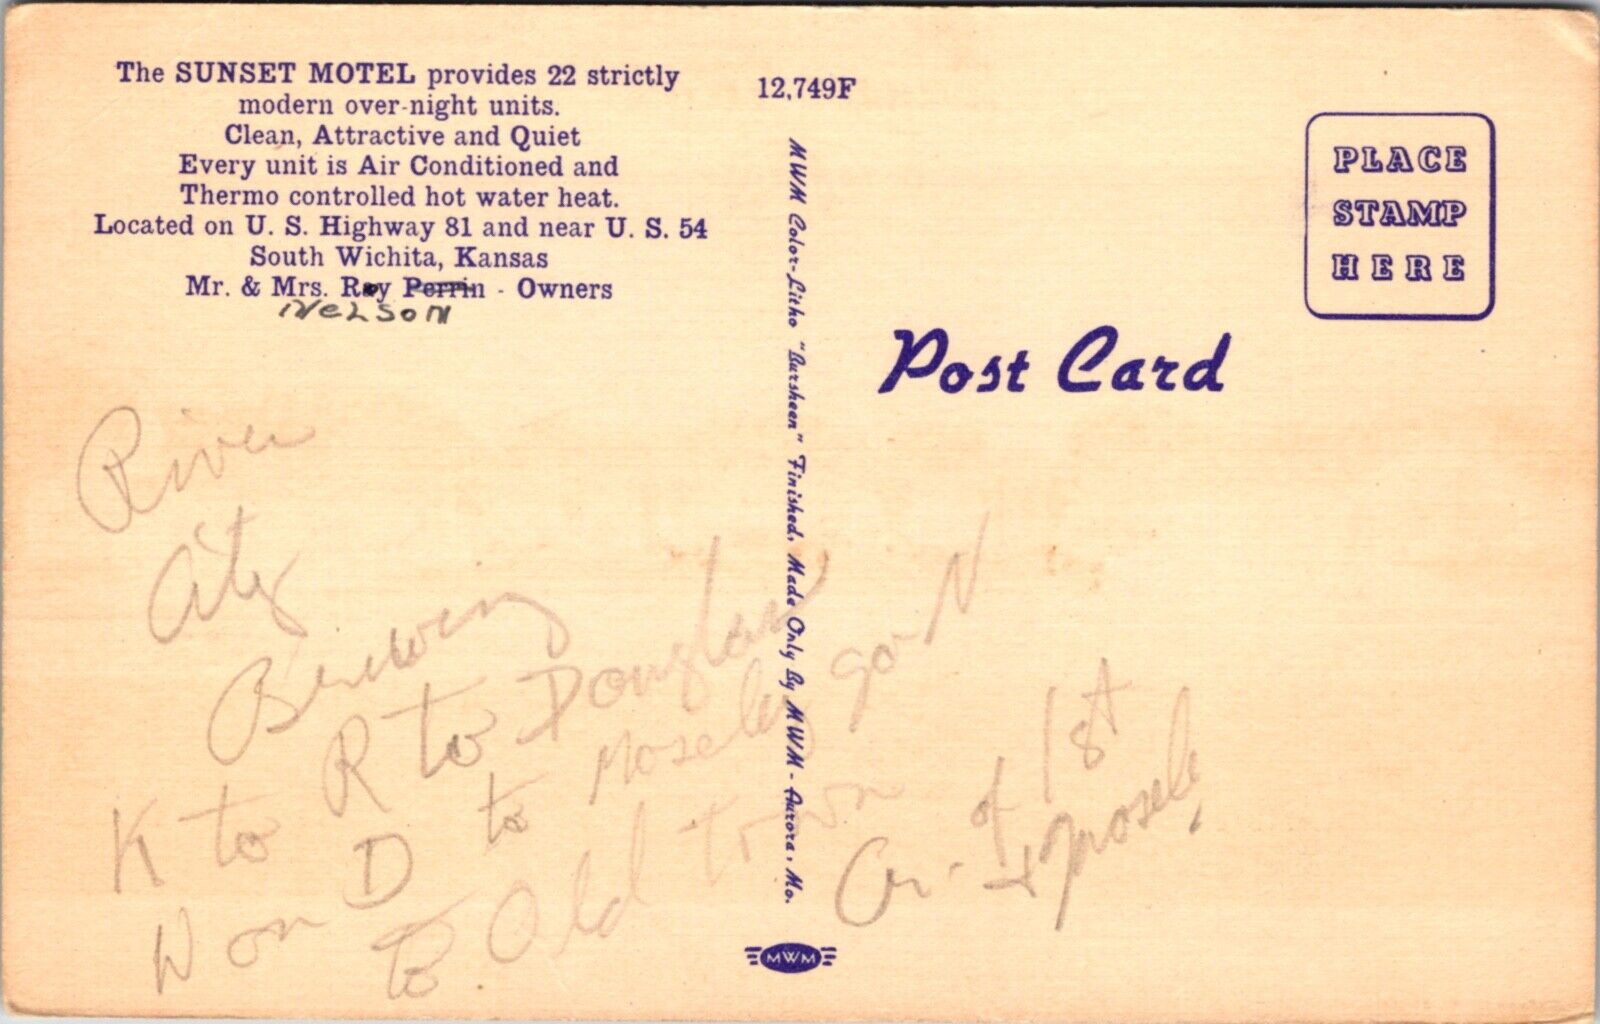 The SUNSET MOTEL provides 22 strictly
modern over-night units.
Clean, Attractive and Quiet
Every unit is Air Conditioned and
Thermo controlled hot water heat.
Located on U. S. Highway 81 and near U. S. 54
South Wichita, Kansas
Mr. & Mrs. Roy Perrin - Owners
NELSON
River
City
Brewing
K to R to Douglas
W on D to Moseley go N
to Old town
Cr. of 1st
+ Mosely
12,749F
MWM Color-Litho "Bursheen" Finished, Made Only By MWM - Aurora, Mo.
MWM
PLACE
STAMP
HERE
Post Card